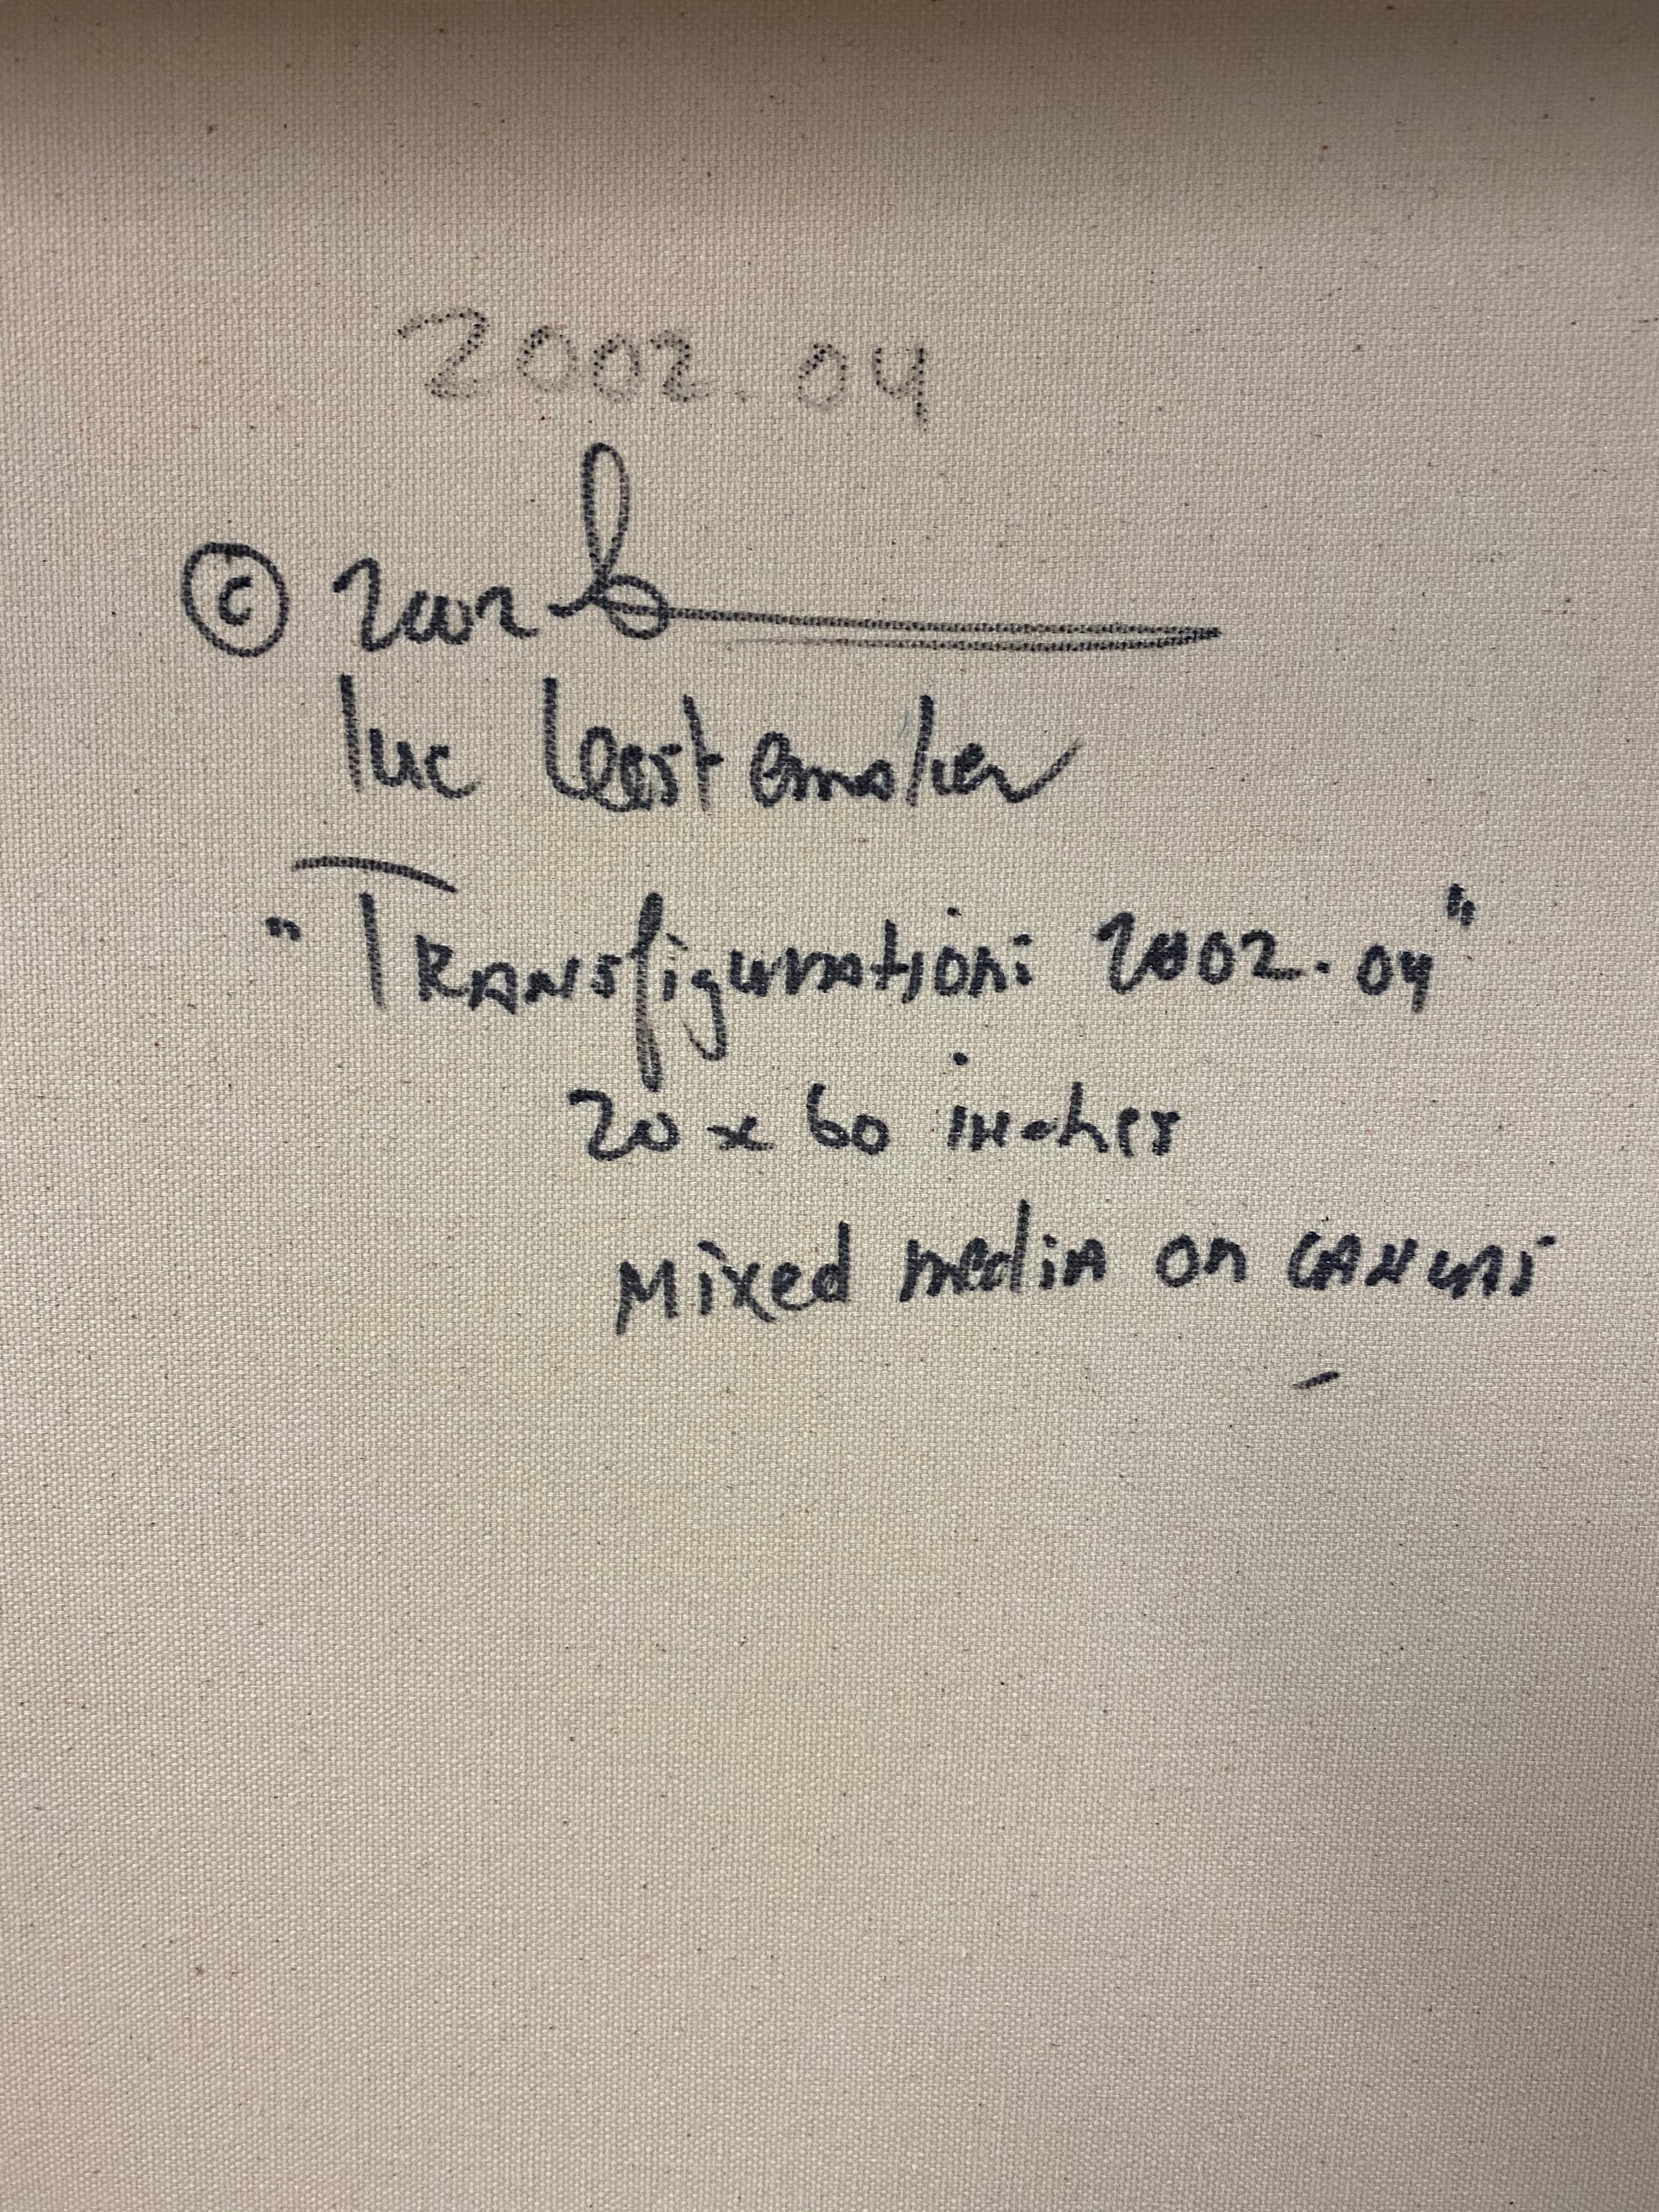 2002.04
© 2002
luc leestemaker
"TRANSfiguration: 2002.04"
20 x 60 inches
Mixed media on CANVAS